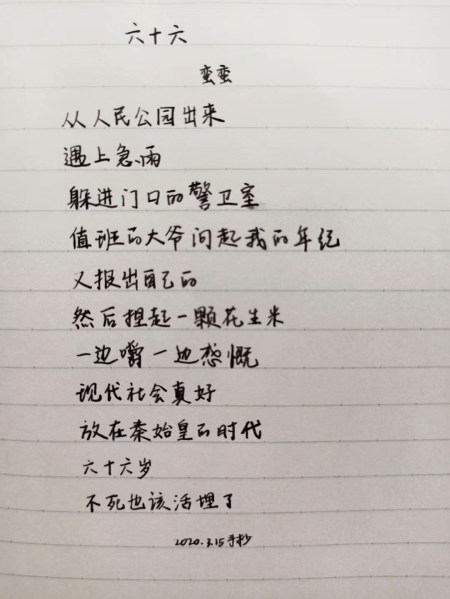 六十六
蛮蛮
从人民公园出来
遇上急雨
躲进门口的警卫室
值班的大爷问起我的年纪
又报出自己的
然后捏起一颗花生米
一边嚼一边感慨
现代社会真好
放在秦始皇的时代
六十六岁
不死也该活埋了
2020.3.15手抄